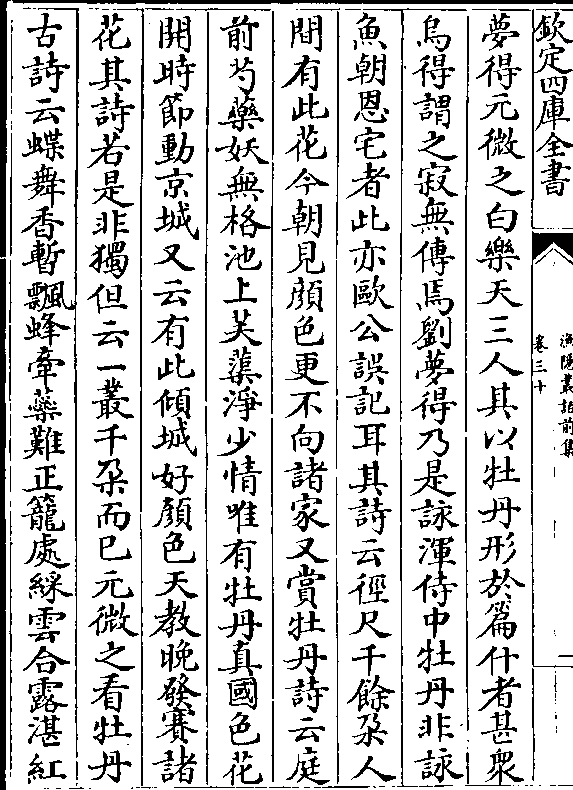 欽定四庫全書
漁隱叢話前集
卷三十
夢得元微之白樂天三人其以牡丹形於篇什者甚衆
烏得謂之寂無傳焉劉夢得乃是詠渾侍中牡丹非詠
魚朝恩宅者此亦歐公誤記耳其詩云徑尺千餘朶人
間有此花今朝見顔色更不向諸家又賞牡丹詩云庭
前芍藥妖無格池上芙蕖淨少情唯有牡丹真國色花
開時節動京城又云有此傾城好顔色天教晚發賽諸
花其詩若是非獨但云一叢千朶而已元微之看牡丹
古詩云蝶舞香暫飄蜂牽蘂難正籠處綵雲合露湛紅